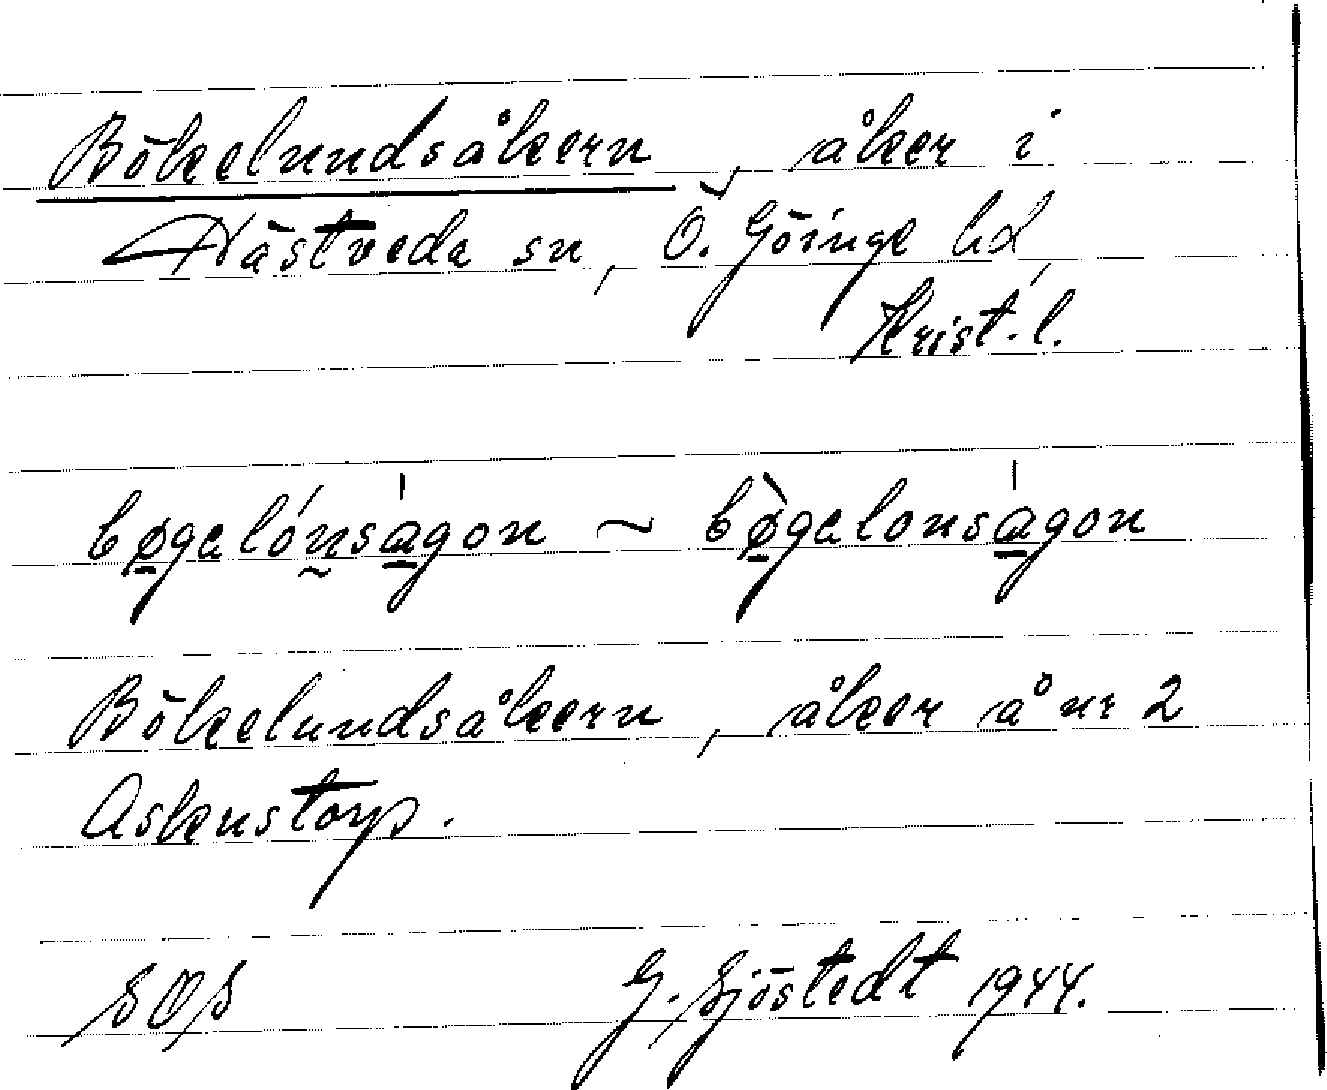 Bökelundsåkern, åker i
Hästveda sn, Ö. Göinge hd,
Krist. l.
bøgalónsagon ~ bø̀galonsagon
Bökelundsåkern, åker å nr 2
Askenstorp.
SOS G. Sjöstedt 1944.